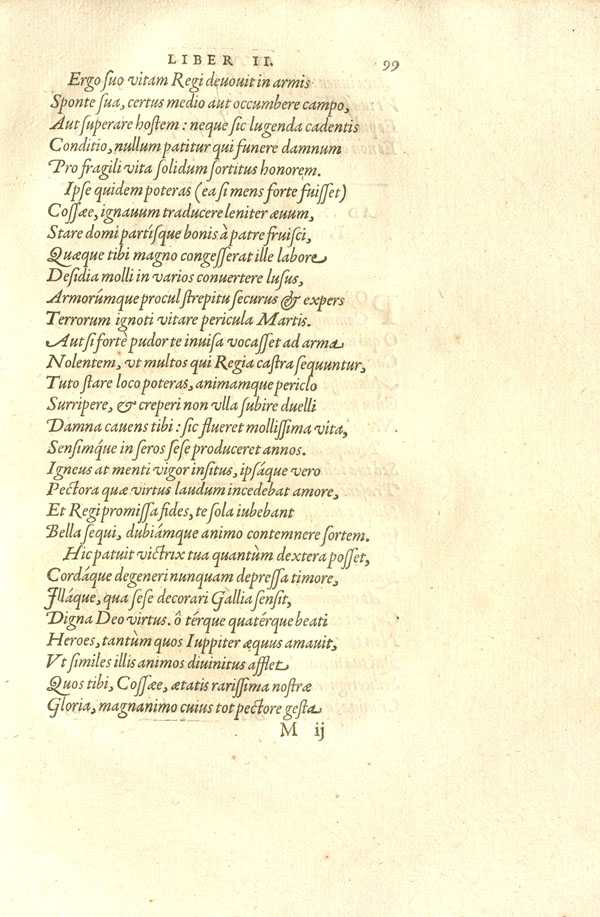 LIBER II. 99
Ergo suo vitam Regi deuouit in armis
Sponte sua, certus medio aut occumbere campo,
Aut superare hostem : neque sic lugenda cadentis
Conditio, nullum patitur qui funere damnum
Pro fragili vita solidum sortitus honorem.
Ipse quidem poteras (ea si mens forte fuisset)
Cossæe, ignauum traducere leniter æuum,
Stare domi partísque bonis à patre fruisci,
Quæque tibi magno congesserat ille labore
Desidia molli in varios conuertere lusus,
Armorúmque procul strepitu securus & expers
Terrorum ignoti vitare pericula Martis.
Aut si forte pudor te inuisa vocasset ad arma
Nolentem, vt multos qui Regia castra sequuntur,
Tuto stare loco poteras, animamque periclo
Surripere, & creperi non vlla subire duelli
Damna cauens tibi : sic flueret mollissima vita,
Sensimq́ue in seros sese produceret annos.
Igneus at menti vigor insitus, ipsáque vero
Pectora quæ virtus laudum incedebat amore,
Et Regi promissa fides, te sola iubebant
Bella sequi, dubiámque animo contemnere sortem.
Hic patuit victrix tua quantùm dextera posset,
Cordáque degeneri nunquam depressa timore,
Illáque, qua sese decorari Gallia sensit,
Digna Deo virtus. ô térque quatérque beati
Heroes, tantùm quos Iuppiter æquus amauit,
Vt similes illis animos diuinitus afflet
Quos tibi, Cossæe, ætatis rarissima nostræ
Gloria, magnanimo cuius tot pectore gesta
M ij